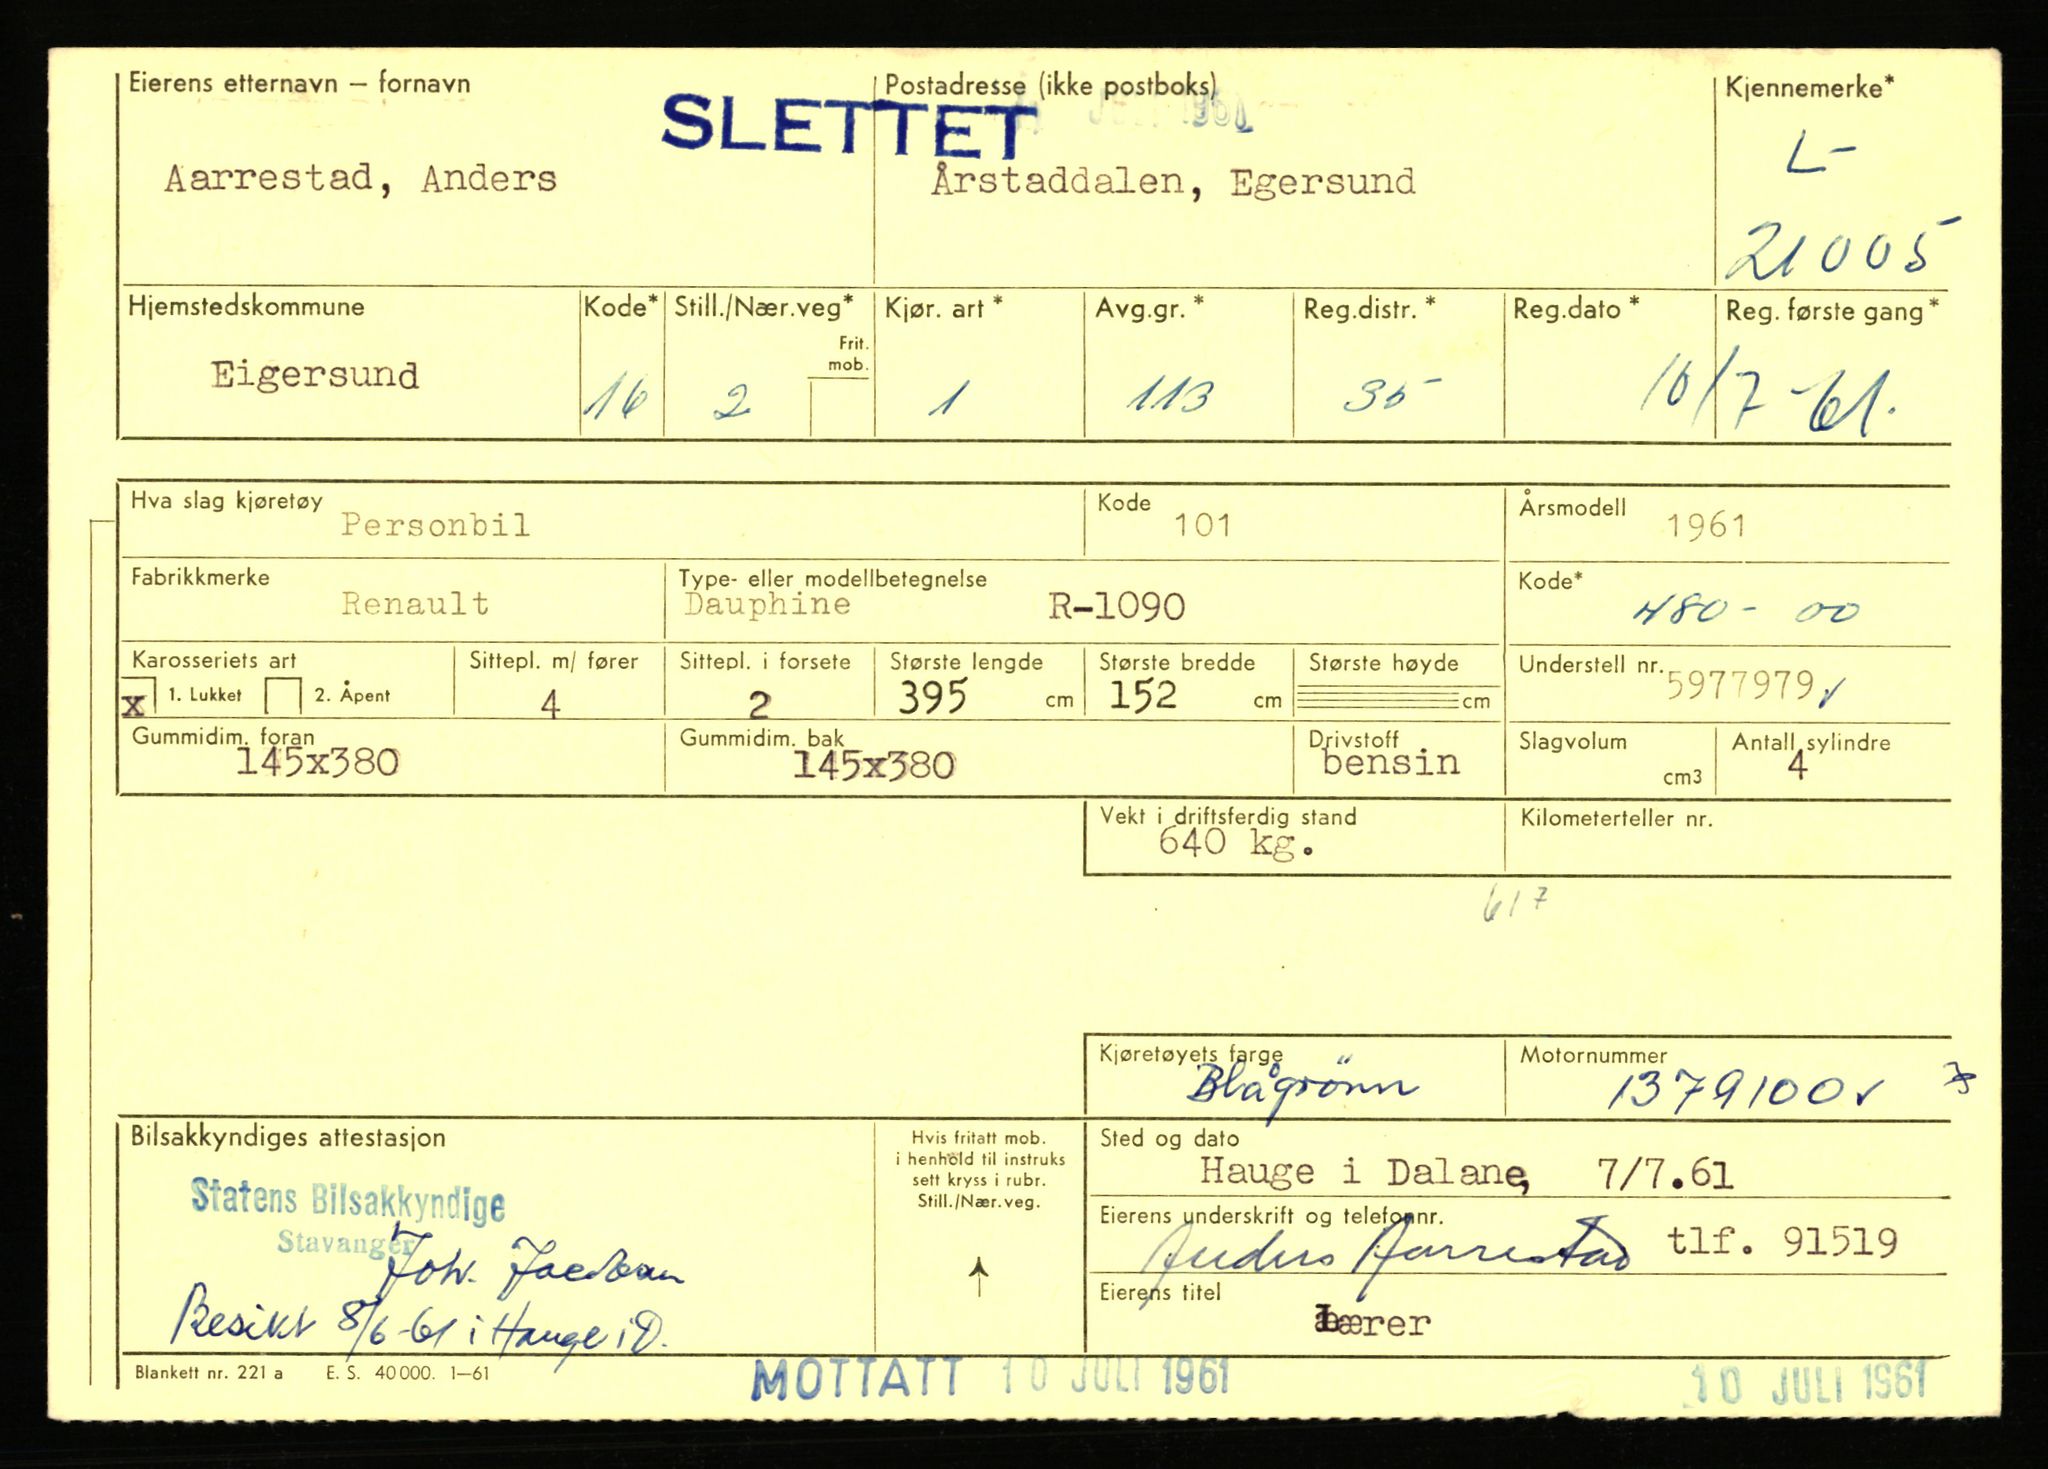 Eierens etternavn – fornavn
Postadresse (ikke postboks)
Kjennemerke*
SLETTET
1961
Aarrestad, Anders
Årstaddalen, Egersund
L-
21005
Hjemstedskommune
Kode*
Still./Nær.veg*
Kjør. art*
Avg.gr.*
Reg.distr.*
Reg.dato*
Reg. første gang*
Frit. mob.
Eigersund
16
2
1
113
35
10/7-61.
Hva slag kjøretøy
Personbil
Kode
101
Årsmodell
1961
Fabrikkmerke
Renault
Type- eller modellbetegnelse
Dauphine R-1090
Kode*
480-00
Karosseriets art
x 1. Lukket 2. Åpent
Sittepl. m/ fører
4
Sittepl. i forsete
2
Største lengde
395 cm
Største bredde
152 cm
Største høyde
cm
Understell nr.
5977979
Gummidim. foran
145x380
Gummidim. bak
145x380
Drivstoff
bensin
Slagvolum
cm3
Antall sylindre
4
Vekt i driftsferdig stand
640 kg.
Kilometerteller nr.
617
Kjøretøyets farge
Blågrönn
Motornummer
1379100
Bilsakkyndiges attestasjon
Statens Bilsakkyndige
Stavanger
Joh. Jacobsen
Besikt 8/6-61 i Hauge i D.
Hvis fritatt mob.
i henhold til instruks
sett kryss i rubr.
Still./Nær.veg.
Sted og dato
Hauge i Dalane, 7/7.61
Eierens underskrift og telefonnr.
Anders Aarrestad tlf. 91519
Eierens titel
Lærer
Blankett nr. 221 a E. S. 40 000. 1–61
MOTTATT 10 JULI 1961
10 JULI 1961